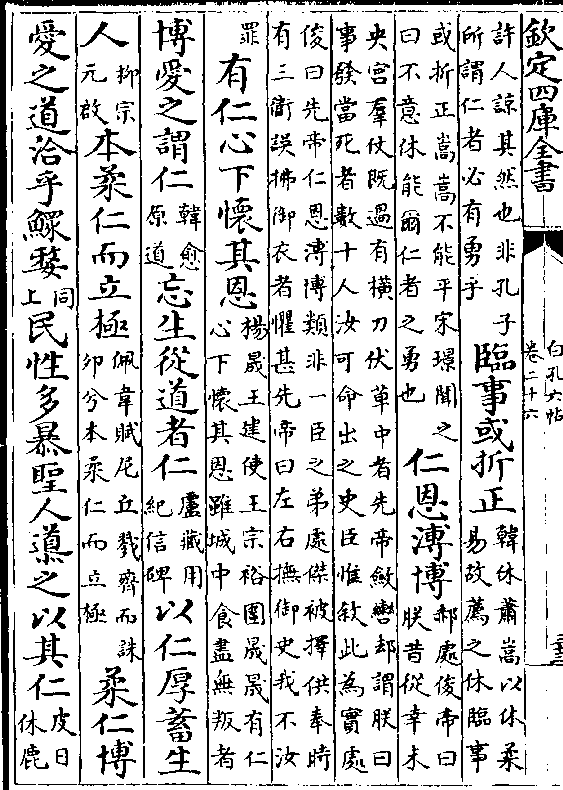 欽定四庫全書
白孔六帖
卷二十六
許人諒其然也非孔子
所謂仁者必有勇乎
臨事或折正
韓休蕭嵩以休柔
易故薦之休臨事
或折正嵩嵩不能平宋璟聞之
曰不意休能爾仁者之勇也
仁恩溥博
郝處俊帝曰
朕昔從幸未
央宫羣仗既過有横刀伏草中者先帝斂轡却謂朕曰
事發當死者數十人汝可命出之史臣惟敘此為實處
俊曰先帝仁恩溥博類非一臣之弟處傑被擇供奉時
有三衛誤拂御衣者懼甚先帝曰左右撫御史我不汝
罪
有仁心下懷其恩
楊晟王建使王宗裕圍晟晟有仁
心下懷其恩雖城中食盡無叛者
博愛之謂仁
韓愈
原道
忘生從道者仁
盧藏用
紀信碑
以仁厚蓄生
人
柳宗
元啟
本柔仁而立極
佩韋賦尼丘戮齊而誅
卯兮本柔仁而立極
柔仁博
愛之道洽乎鰥嫠
同
上
民性多暴聖人導之以其仁
皮日
休鹿